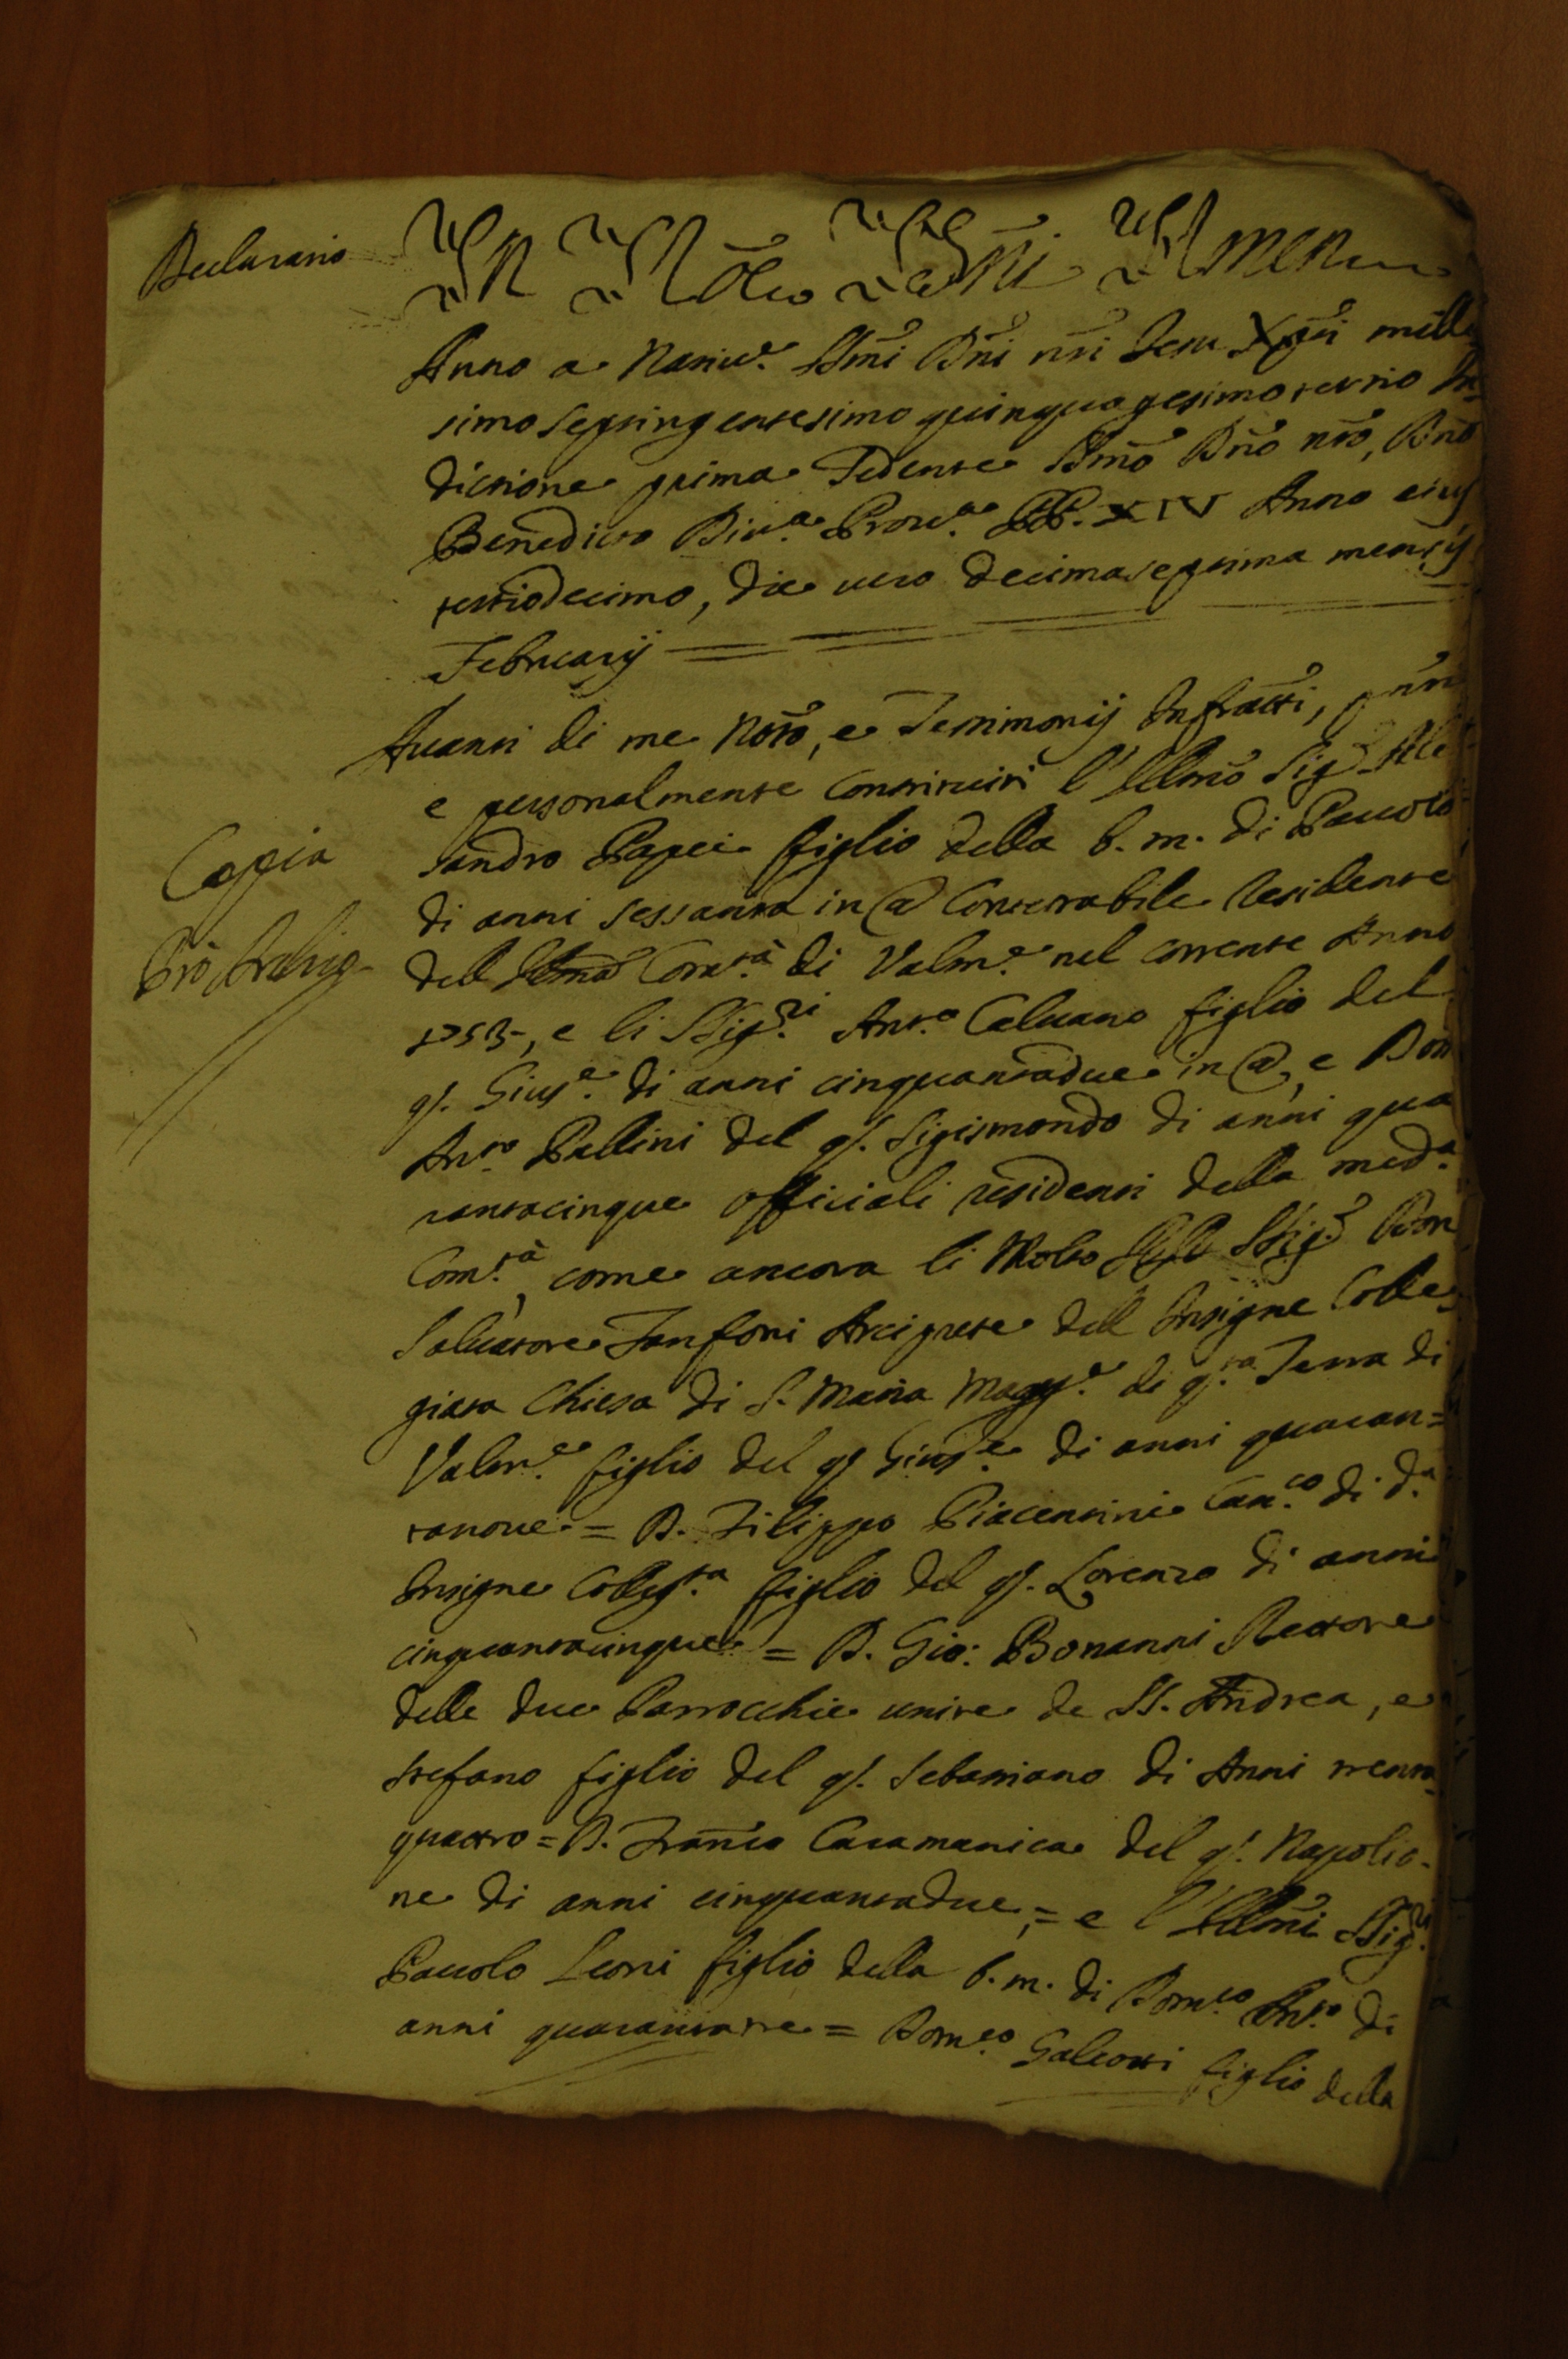 Declaratio
In Nõe Dñi Amen
Anno a Nativ.e Dñi Dñi nri Jesu Xpti mille
simo septingentesimo quinquagesimo tertio In
dictione prima Sedente Ssmõ Dño nrõ, Dno
Benedicto Div.a Prov.a PP. XIV Anno eius
tertiodecimo, die vero decimaseptima mensis
Februarij
Avanti di me Notõ, e Testimonij Infratti, pnti
e personalmente Constituiti l'Illmõ Sig.r Ale
sandro Papei figlio della b. m. di Pauolo
di anni sessanta in @ Contestabile Residente
dell Com.tà di Valm.e nel corrente Anno
1753, e li SSig.ri Ant.o Calvano figlio del
q. Gius.e di anni cinquantadue in @, e Dom
Ant.o Pallini del q. Sigismondo di anni qua
rantacinque officiali residenti della med.a
Com.tà, come ancora li Molto SSig.ri Don
Salvatore Fanfoni Arciprete dell Insigne Colle
giata Chiesa di S. Maria Magg.e di q.ta Terra di
Valm.e figlio del q. Gius.e di anni quaran=
tanove = D. Filippo Piacentini Can.co di d.a
Insigne Colleg.ta figlio del q. Lorenzo di anni
cinquantacinque = D. Gio: Bonanni Rettore
delle due Parrocchie unite de SS. Andrea, e
Stefano figlio del q. Sebastiano di Anni trenta
quattro = D. Franco Caramanica del q. Napolio-
ne di anni cinquantadue, = e l'Illmi SSig.ri
Pauolo Leoni figlio della b. m. di Dom.co Ant.o di
anni quarantatre = Dom.co Galeotti figlio della
Copia
Prò